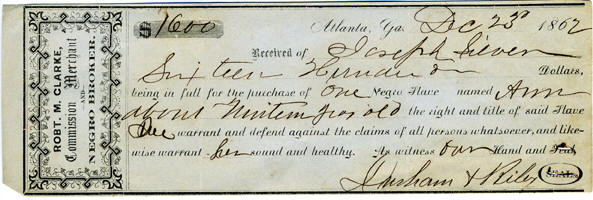 ROBT. M. CLARKE,
Commission Merchant
AND
NEGRO BROKER.
$ 1600 Atlanta, Ga. Dec 23d 1862
Received of Joseph
Sixteen Hundred Dollars,
being in full for the purchase of One Negro Slave named Ann
about Ninteen yrs old the right and title of said Slave
We warrant and defend against the claims of all persons whatsoever, and like-
wise warrant her sound and healthy. As witness our Hand and Seal
& Riley SEAL